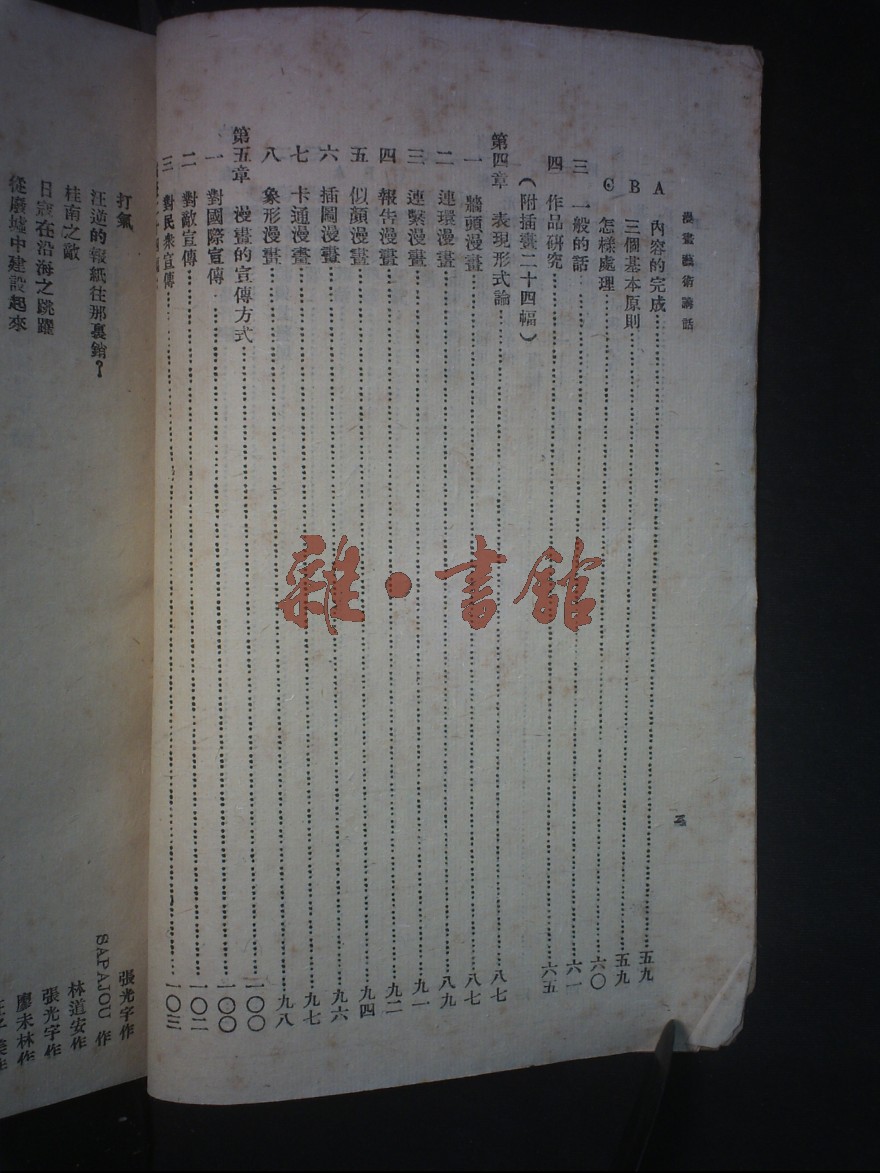 漫畫藝術講話
A 內容的完成……五九
B 三個基本原則……五九
C 怎樣處理……六〇
三 一般的話……六一
四 作品研究……六五
(附插畫二十四幅)
第四章 表現形式論……八七
一 牆頭漫畫……八七
二 連環漫畫……八九
三 連繫漫畫……九一
四 報告漫畫……九二
五 似顏漫畫……九四
六 插圖漫畫……九六
七 卡通漫畫……九七
八 象形漫畫……九八
第五章 漫畫的宣傳方式……一〇〇
一 對國際宣傳……一〇〇
二 對敵宣傳……一〇二
三 對民衆宣傳……一〇三
打氣 張光宇作
汪逆的報紙往那裏銷? SAPAJOU 作
桂南之敵 林道安作
日寇在沿海之跳躍 張光宇作
從廢墟中建設起來 廖未林作
雜·書館